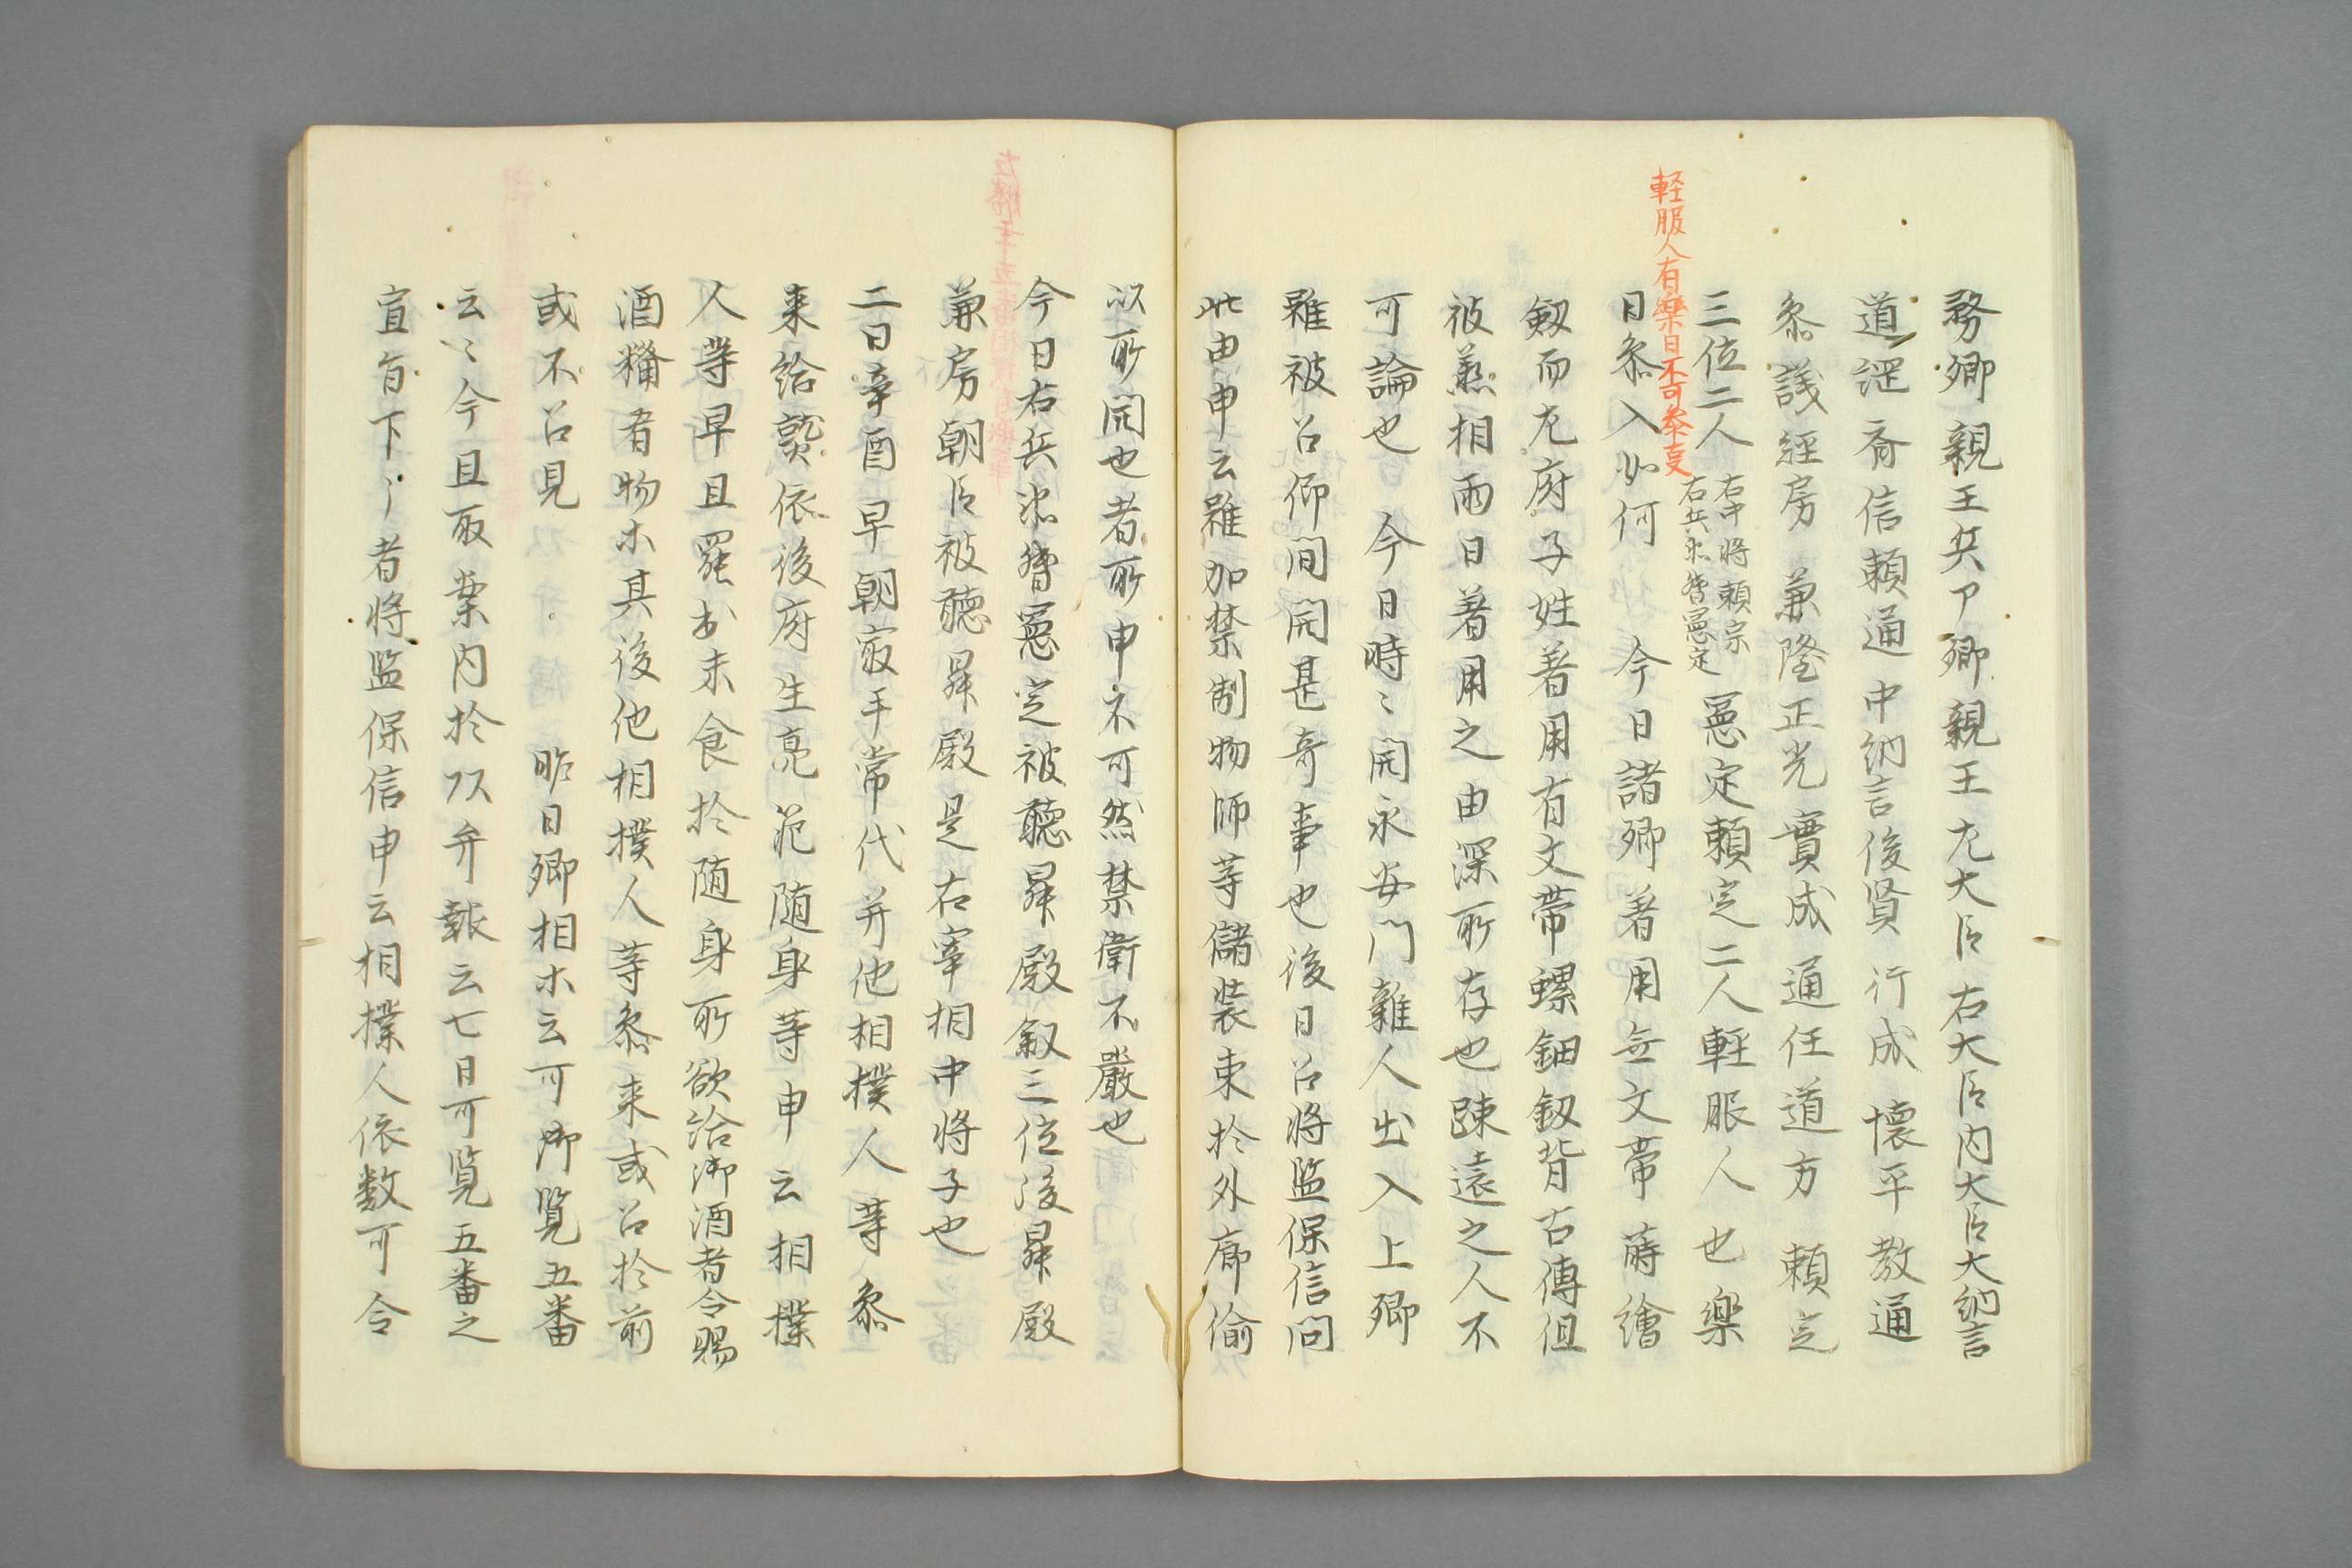 軽服人有樂日不可参事
務卿親王兵ア卿親王左大臣右大臣内大臣大納言
道綱齊信頼通中納言俊賢行成懷平教通
参議經房兼隆正光實成通任道方頼定
三位二人右中将頼宗右兵衛督憲定憲定頼定二人軽服人也樂
日参入如何 今日諸卿着用無文帯蒔繪
釼而左府子姓着用有文帯螺鈿釼背古傳但
被兼相雨日着用之由深所存也踈遠之人不
可論也 今日時〻開永安門雜人出入上卿
雖被召仰間開甚奇事也後日召将監保信問
此由申云雖加禁制物師等儲装束於外廊偷
以所開也者所申不可然禁衛不嚴也
今日右兵衛督憲定被聴昇殿叙三位後昇殿
兼房朝臣被聴昇殿是右宰相中将子也
二日辛酉早朝最手常代并他相撲人等参
来給熟依後府生亮範随身等申云相撲
人等早旦罷出未食於随身所欲給御酒者令賜
酒糒肴物木其後他相撲人等参来或召於前
或不召見 昨日卿相木云可御覧五番
云〻今旦取案内於頭弁報云七日可覧五番之
宣旨下了者将監保信申云相撲人依数可令